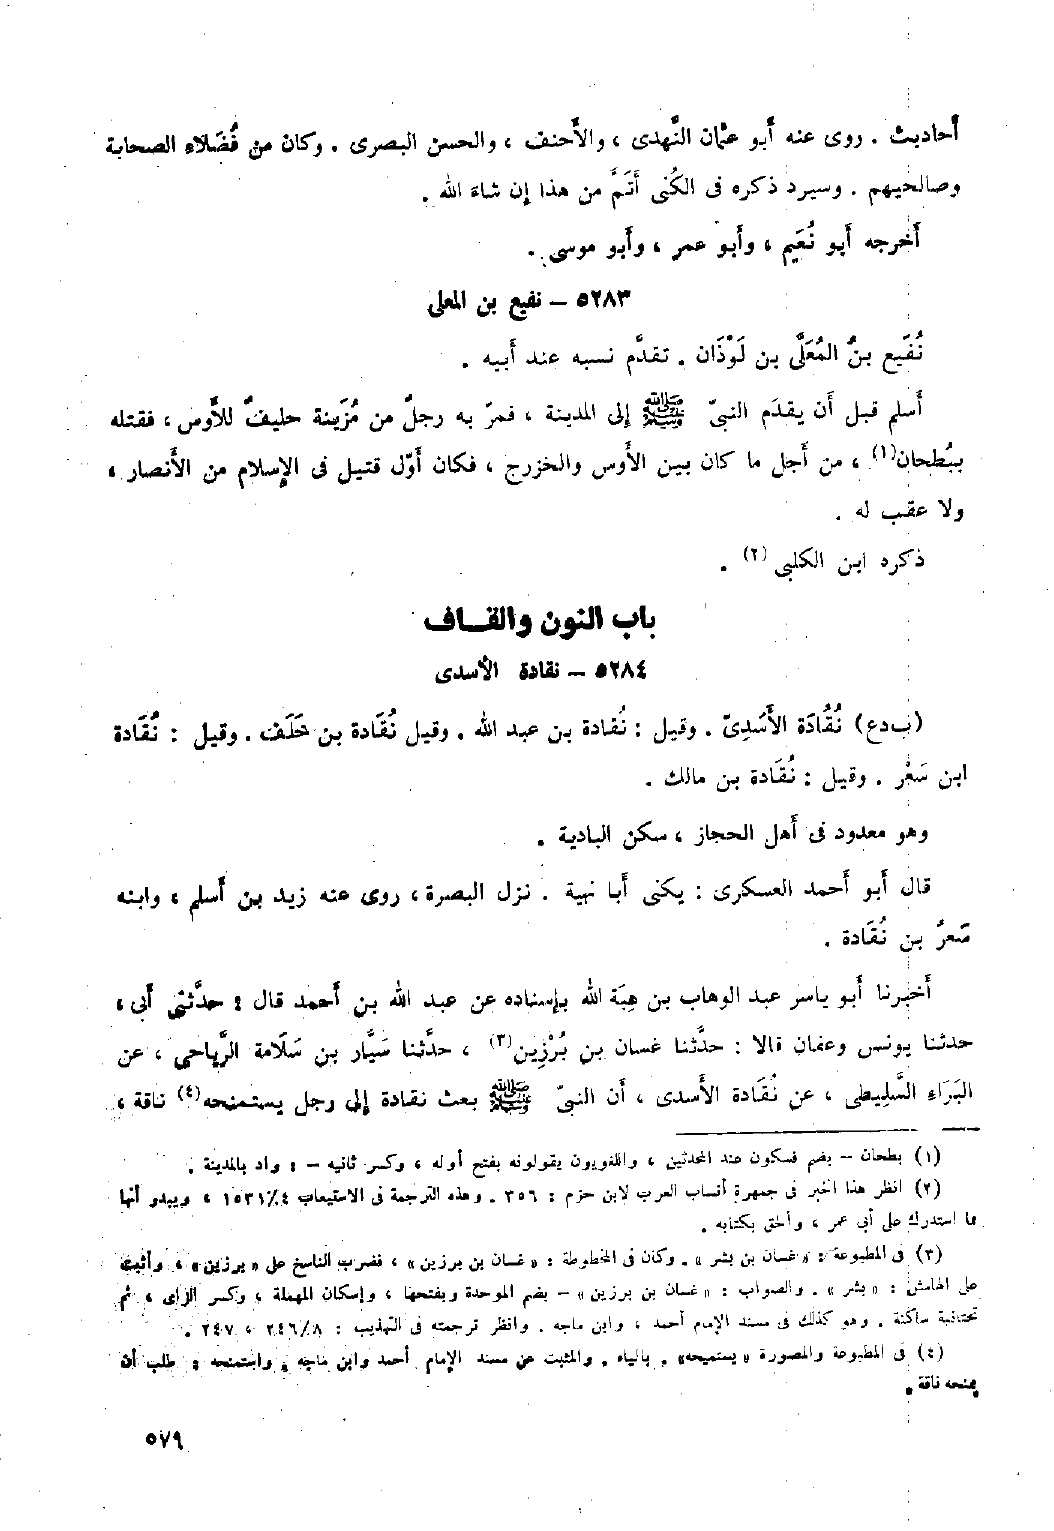 أحاديث . روى عنه أبو عثمان النَّهدى ، والأَحنف ، والحسن البصرى . وكان من فُضَلاءِ الصحابة
وصالحيهم . وسيرد ذكره فى الكُنى أَتَمَّ من هذا إن شاءَ الله .
أَخرجه أَبو نُعَيم ، وأَبو عمر ، وأَبو موسى .
٥٢٨٣ – نفيع بن المعلى
نُفَيع بنُ المُعَلَّى بن لَوْذَان . تقدَّم نسبه عند أَبيه .
أَسلم قبل أَن يقدَم النبىّ ﷺ إلى المدينة ، فمرّ به رجلٌ من مُزَينة حليفٌ للأَوس ، فقتله
ببُطحان(١) ، من أَجل ما كان بين الأَوس والخزرج ، فكان أَوّل قتيل فى الإسلام من الأَنصار ،
ولا عقب له .
ذكره ابن الكلبى (٢) .
باب النون والقاف
٥٢٨٤ – نقادة الأسدى
(ب د ع) نُقُادَة الأَسَدِىّ . وقيل : نُقادة بن عبد الله . وقيل نُقَادة بن خَلَف . وقيل : نُقَادة
ابن سَعْر . وقيل : نُقَادة بن مالك .
وهو معدود فى أَهل الحجاز ، سكن البادية .
قال أَبو أَحمد العسكرى : يكنى أَبا نهية . نزل البصرة ، روى عنه زيد بن أَسلم ، وابنه
سَعرُ بن نُقَادة .
أَخبرنا أَبو ياسر عبد الوهاب بن هِبَة الله بإسناده عن عبد الله بن أَحمد قال : حدَّثنى أَبى ،
حدثنا يونس وعفان قالا : حدَّثنا غسان بن بُرْزِين(٣) ، حدَّثنا سَيَّار بن سَلَامة الرِّياحى ، عن
البَرَاءِ السَّلِيطى ، عن نُقَادة الأَسدى ، أَن النبىّ ﷺ بعث نقادة إلى رجل يستمنحه(٤) ناقة ،
(١) بطحان – بضم فسكون عند المحدثين ، واللغويون يقولونه بفتح أوله ، وكسر ثانيه – : واد بالمدينة .
(٢) انظر هذا الخبر فى جمهرة أنساب العرب لابن حزم : ٣٥٦ . وهذه الترجمة فى الاستيعاب ١٥٣١/٤ ، ويبدو أنها
مما استدرك على أبى عمر ، وألحق بكتابه .
(٣) فى المطبوعة : « غسان بن بشر » . وكان فى المخطوطة : « غسان بن برزين » ، فضرب الناسخ على « برزين » ، وأثبت
على الهامش : « بشر » . والصواب : « غسان بن برزين » – بضم الموحدة وبفتحها ، وإسكان المهملة ، وكسر الزاى ، ثم
تحتانية ساكنة . وهو كذلك فى مسند الإمام أحمد ، وابن ماجه . وانظر ترجمته فى التهذيب : ٢٤٦/٨ ، ٢٤٧ .
(٤) فى المطبوعة والمصورة « يستميحه» . بالياء . والمثبت عن مسند الإمام أحمد وابن ماجه . واستمنحه : طلب أن
يمنحه ناقة .
٥٧٩